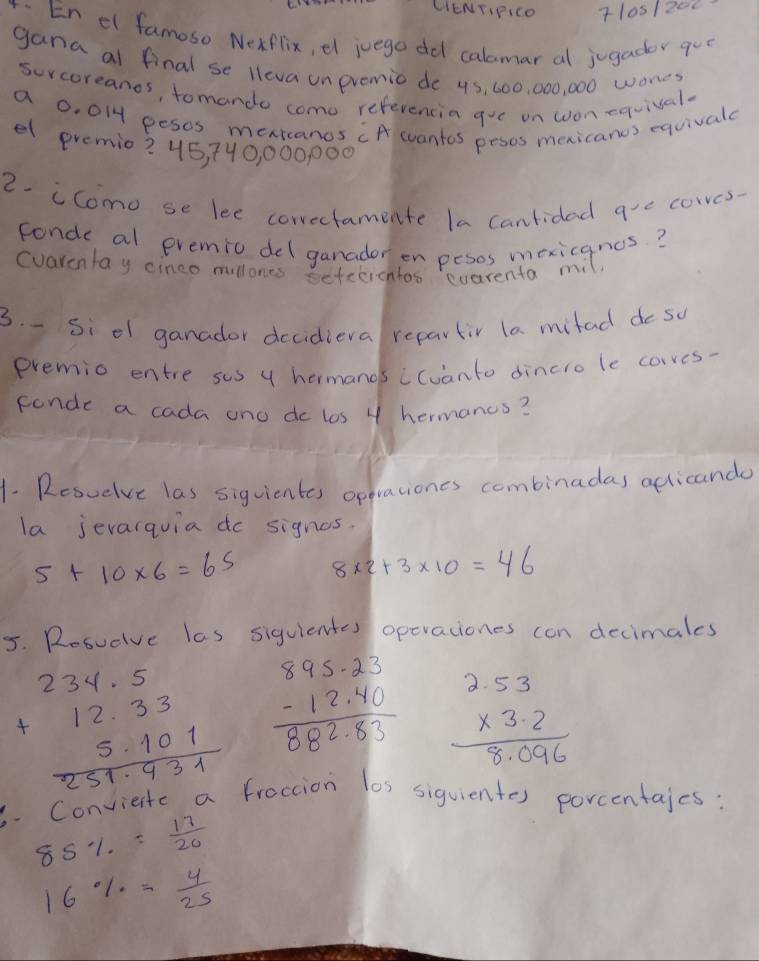 CIENTIFICO 7/05/202
1. En el famoso Nexflix, el juego del calamar al jugador que
gana al final se lleva un premio de 45,600,000,000 wones
surcoreanos, tomando como referencia que un won equivale
a 0.014 pesos mexicanos ¿A cuantos pesos mexicanos equivale
el premio? 45,740,000,000
2- ¿Cómo se lee correctamente la cantidad que corres-
ponde al premio del ganador en pesos mexicanos?
Cuarenta y cinco millones setecientos cuarenta mil.
3.- Si el ganador decidiera repartir la mitad de su
premio entre sus 4 hermanos ¿Cuánto dinero le corres-
ponde a cada uno de los 4 hermanos?
4- Resuelve las siguientes operaciones combinadas aplicando
la jerarquia de signos.
5 + 10 x 6 = 65 8x2+3x10 = 46
5. Resuelve las siguientes operaciones con decimales
234.5 895.23 2.53
+ 12.33 - 12.40 x 3.2
5.101 882.83 8.096
251.931
6- Convierte a fraccion los siguientes porcentajes:
85%. = 17/20
16%. = 4/25